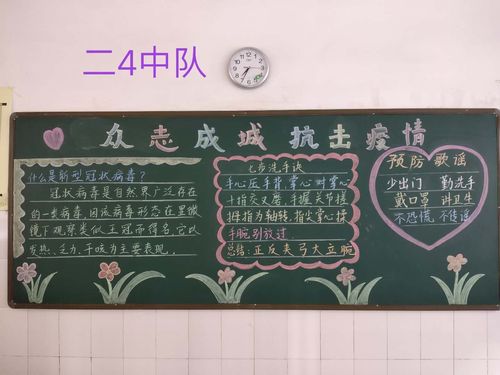 二4中队
众志成城 抗击疫情
什么是新型冠状病毒?
冠状病毒是自然界广泛存在
的一类病毒,因该病毒形态在显微
镜下观察类似王冠而得名,它以
发热、乏力、干咳为主要表现。
七步洗手法
手心压手背 掌心对掌心
十指交叉磨 手握关节搓
拇指为轴转 指尖掌心揉
手腕别放过
总结:正反夹弓大立腕
预防歌谣
少出门 勤洗手
戴口罩 讲卫生
不恐慌 不传谣